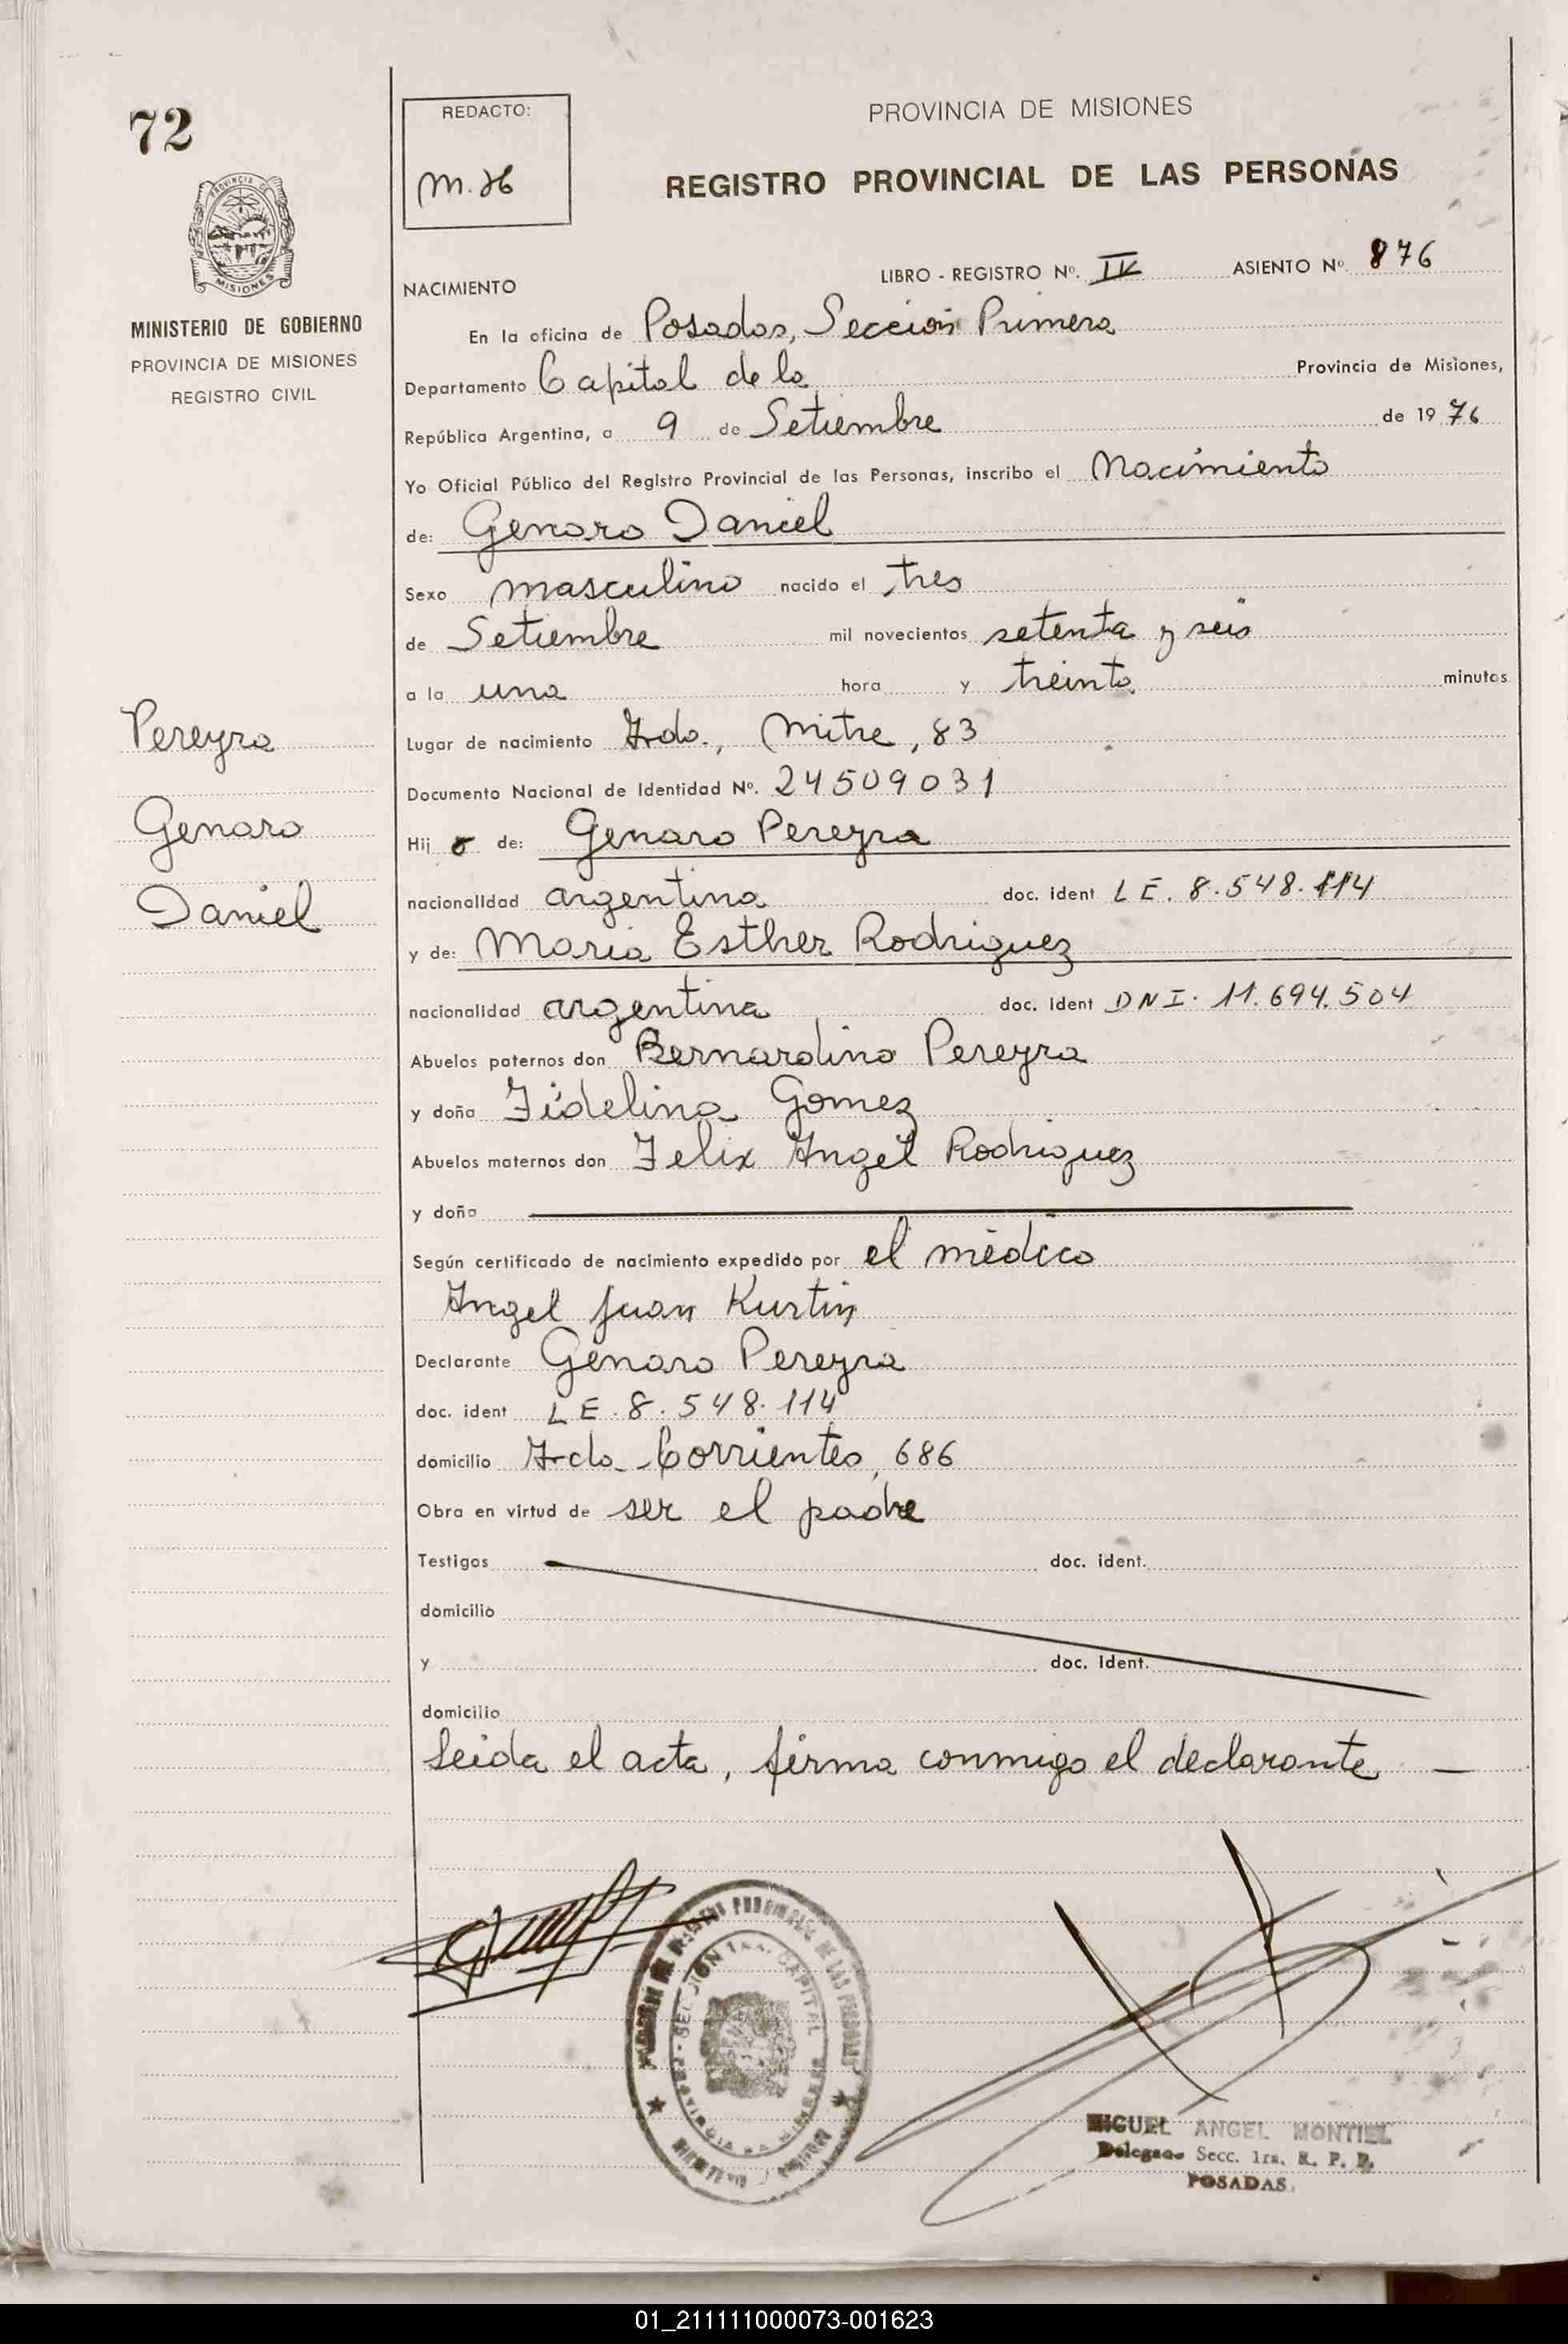 72
PROVINCIA DE
MISIONES
MINISTERIO DE GOBIERNO
PROVINCIA DE MISIONES
REGISTRO CIVIL
Pereyra
Genaro
Daniel
REDACTO:
PROVINCIA DE MISIONES
REGISTRO PROVINCIAL DE LAS PERSONAS
NACIMIENTO
LIBRO - REGISTRO Nº. IV ASIENTO Nº. 876
En la oficina de Posadas, Sección Primera
Departamento Capital de la Provincia de Misiones,
República Argentina, a 9 de Setiembre de 1976
Yo Oficial Público del Registro Provincial de las Personas, inscribo el Nacimiento
de: Genaro Daniel
Sexo masculino nacido el tres
de Setiembre mil novecientos setenta y seis
a la una hora y treinta minutos
Lugar de nacimiento Avda., Mitre, 83
Documento Nacional de Identidad Nº. 24509031
Hij o de: Genaro Pereyra
nacionalidad argentina doc. ident LE. 8.548.114
y de: Maria Esther Rodriguez
nacionalidad argentina doc. ident DNI. 11.694.504
Abuelos paternos don Bernardino Pereyra
y doña Fidelina Gomez
Abuelos maternos don Felix Angel Rodriguez
y doña
Según certificado de nacimiento expedido por el médico
Angel Juan Kurtin
Declarante Genaro Pereyra
doc. ident LE. 8.548.114
domicilio Avda. Corrientes, 686
Obra en virtud de ser el padre
Testigos doc. ident.
domicilio
y doc. ident.
domicilio
Leida el acta, firma conmigo el declarante
MIGUEL ANGEL MONTIEL
Delegado Secc. 1ra. R. P. P.
POSADAS.
01_211111000073-001623